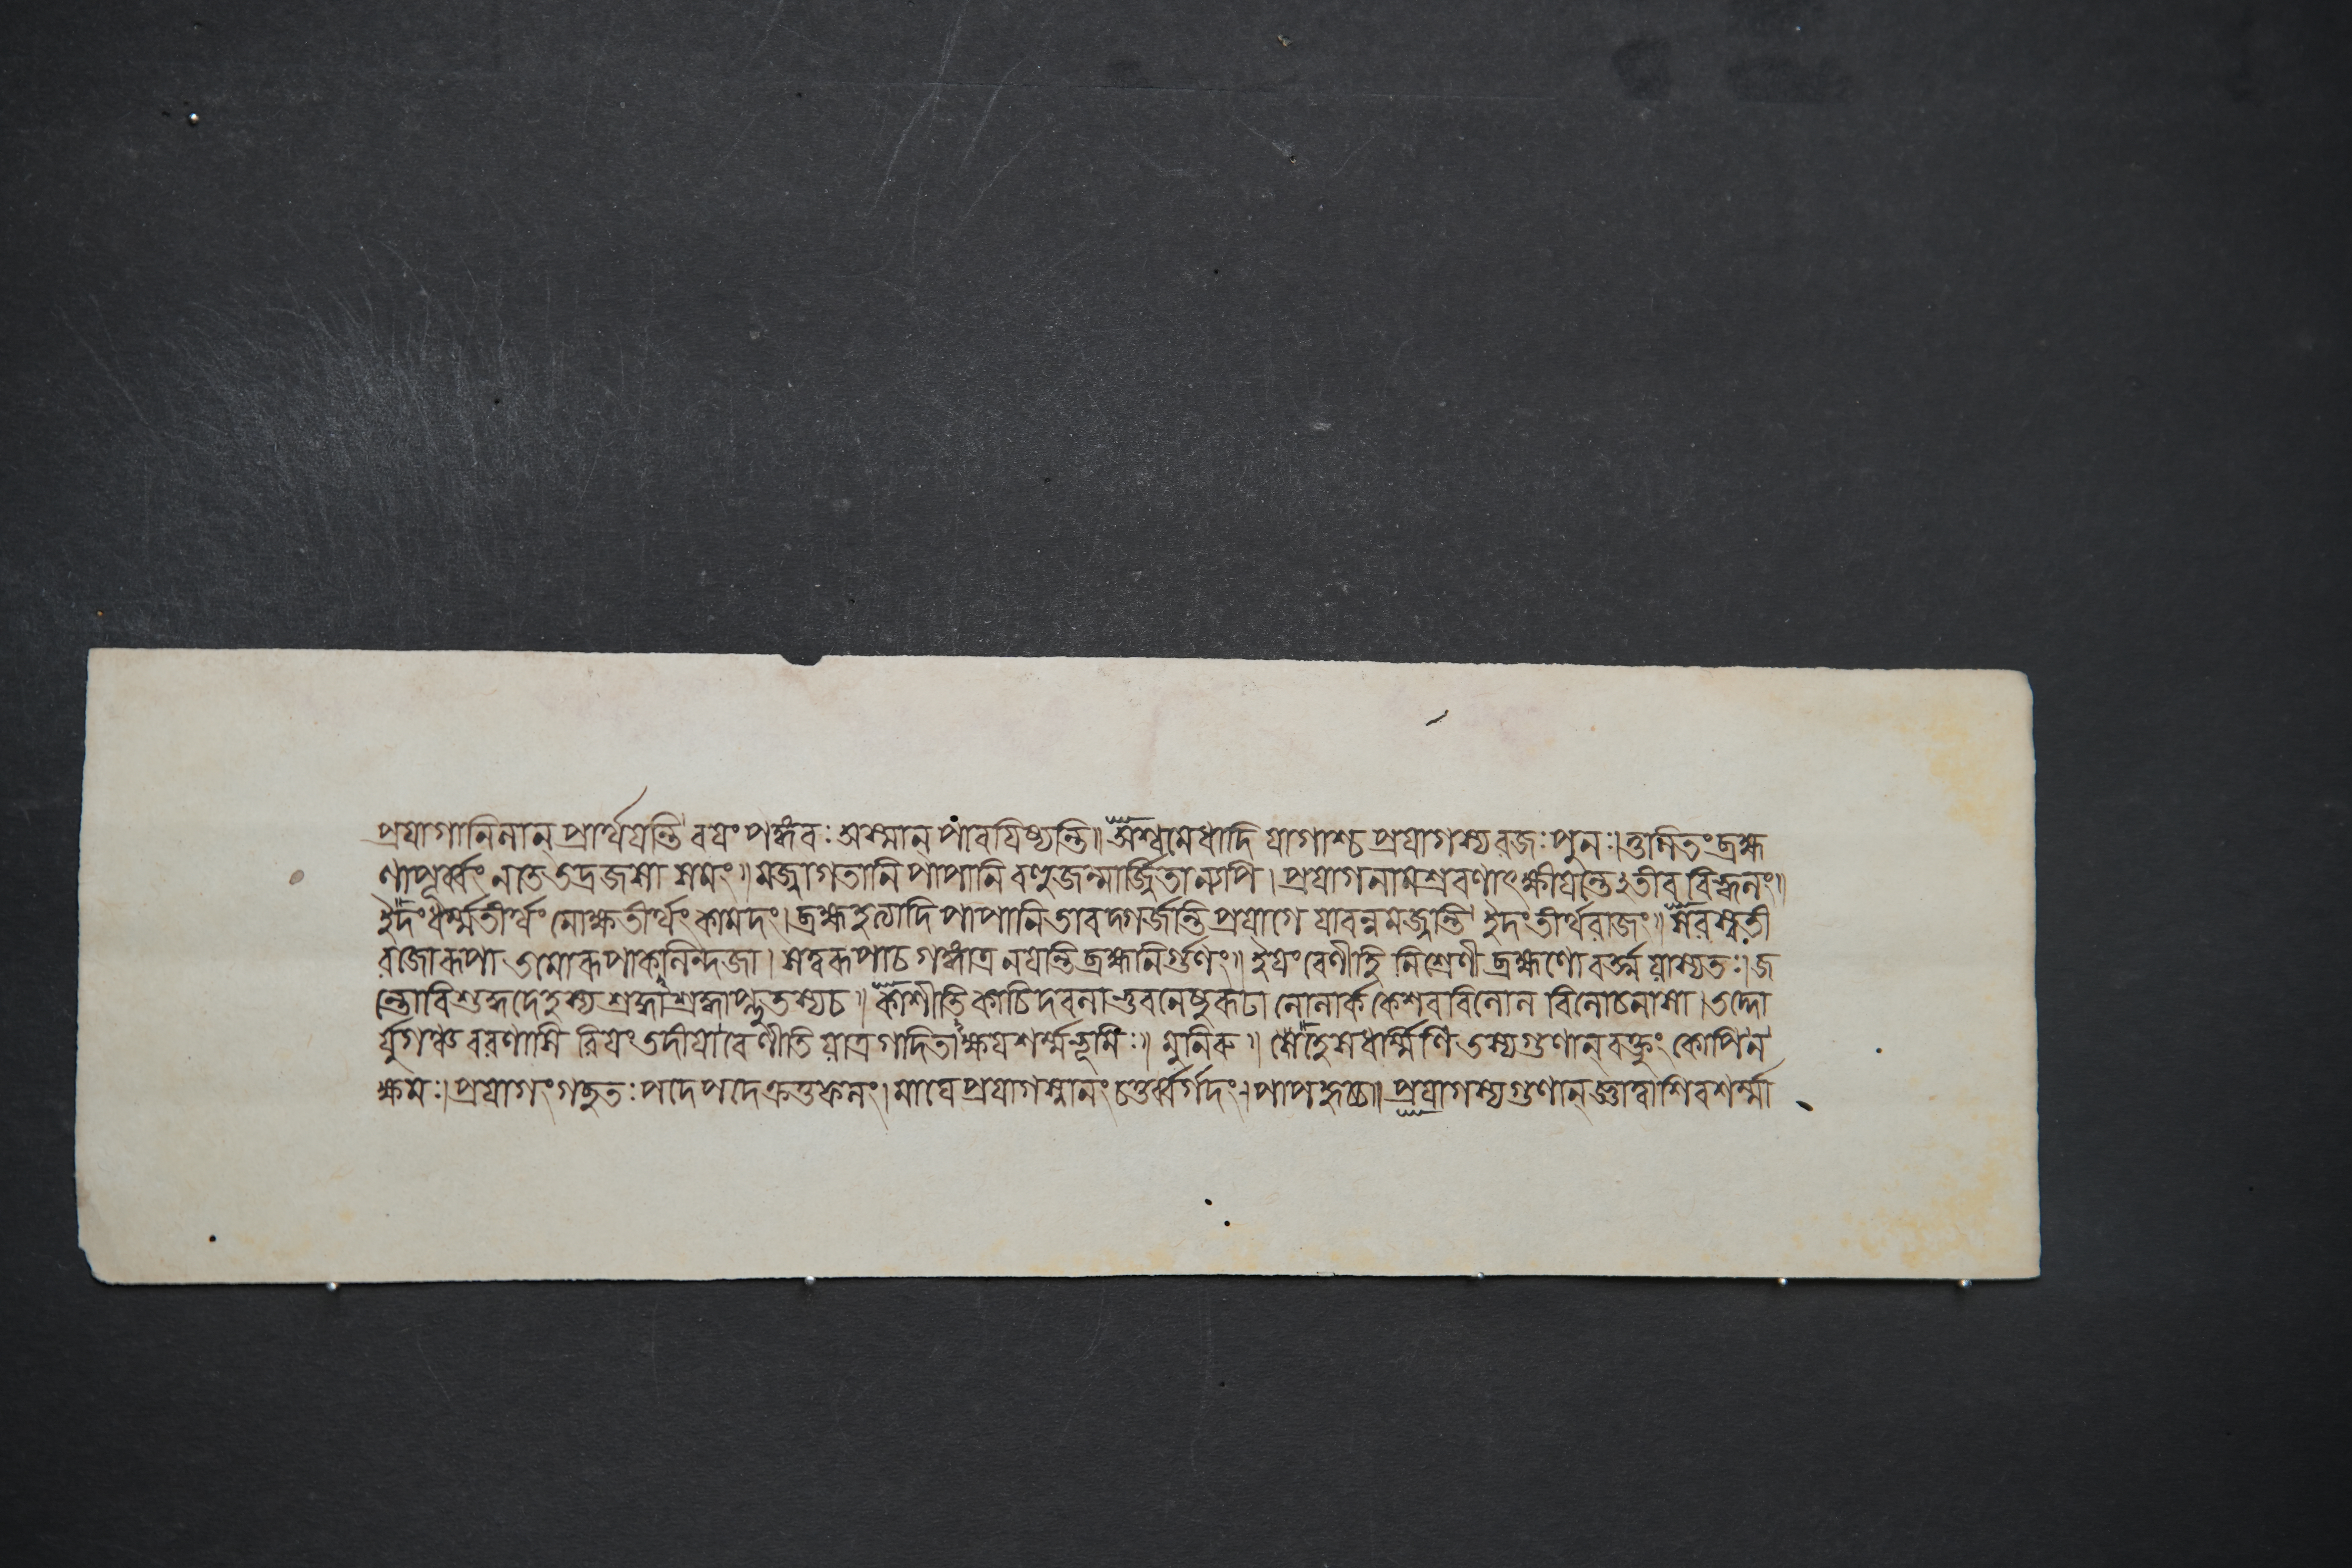 প্রযাগানিলান্ প্রার্থযন্তি বযং পঙ্কবঃ অস্মান্ পাবযিষ্যন্তি॥ অশ্বমেধাদি যাগাশ্চ প্রযাগস্য রজঃ পুনঃ। তুলিতং ব্রহ্ম
ণা পূর্ব্বং ন তে তদ্রজসা সমং॥ মজ্জাগতানি পাপানি বহুজন্মার্জিতান্যপি। প্রযাগনামশ্রবণাৎ ক্ষীযন্তেঽতীব বিহ্বলং॥
ইদং ধর্ম্মতীর্থং মোক্ষতীর্থং কামদং। ব্রহ্মহত্যাদি পাপানি তাবদ্গর্জন্তি প্রযাগে যাবন্ন মজ্জন্তি ইদং তীর্থরাজং॥ সরস্বতী
রজোরূপা তমোরূপা কলিন্দজা। সত্ত্বরূপা চ গঙ্গাত্র নযন্তি ব্রহ্মনির্গুণং॥ ইযং বেণীহি নিশ্রেণী ব্রহ্মণো বর্ত্ম যাস্যতঃ। জ
ন্তোর্বিশুদ্ধদেহস্য শ্রদ্ধাশ্রদ্ধাপ্লুতস্য চ॥ কাশীতি কাচিদবলা ভুবনেষু রূঢা লোলার্ক কেশববিলোল বিলোচনা সা। তদ্দো
র্যুগঞ্চ বরণাসি রিযং তদীযা বেণীতি যাত্র গদিতাক্ষযশর্ম্মভূমিঃ॥ মুনিরু॥ সহি সধর্ম্মিণি তস্য গুণান্ বক্তুং কোপি ন
ক্ষমঃ। প্রযাগং গচ্ছতঃ পদে পদে ক্রতুফলং। মাঘে প্রযাগস্নানং চতুর্ব্বর্গদং। পাপহৃচ্চ॥ প্রযাগস্য গুণান্ জ্ঞাত্বা শিবশর্ম্মা